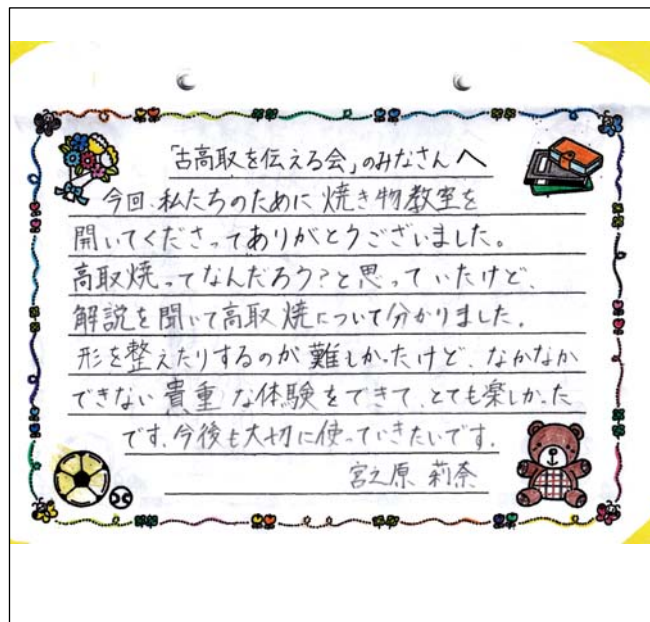 「古高取を伝える会」のみなさんへ
今回、私たちのために焼き物教室を
開いてくださってありがとうございました。
高取焼ってなんだろう?と思っていたけど、
解説を聞いて高取焼について分かりました。
形を整えたりするのが難しかったけど、なかなか
できない貴重な体験をできて、とても楽しかった
です。今後も大切に使っていきたいです。
宮之原 莉奈